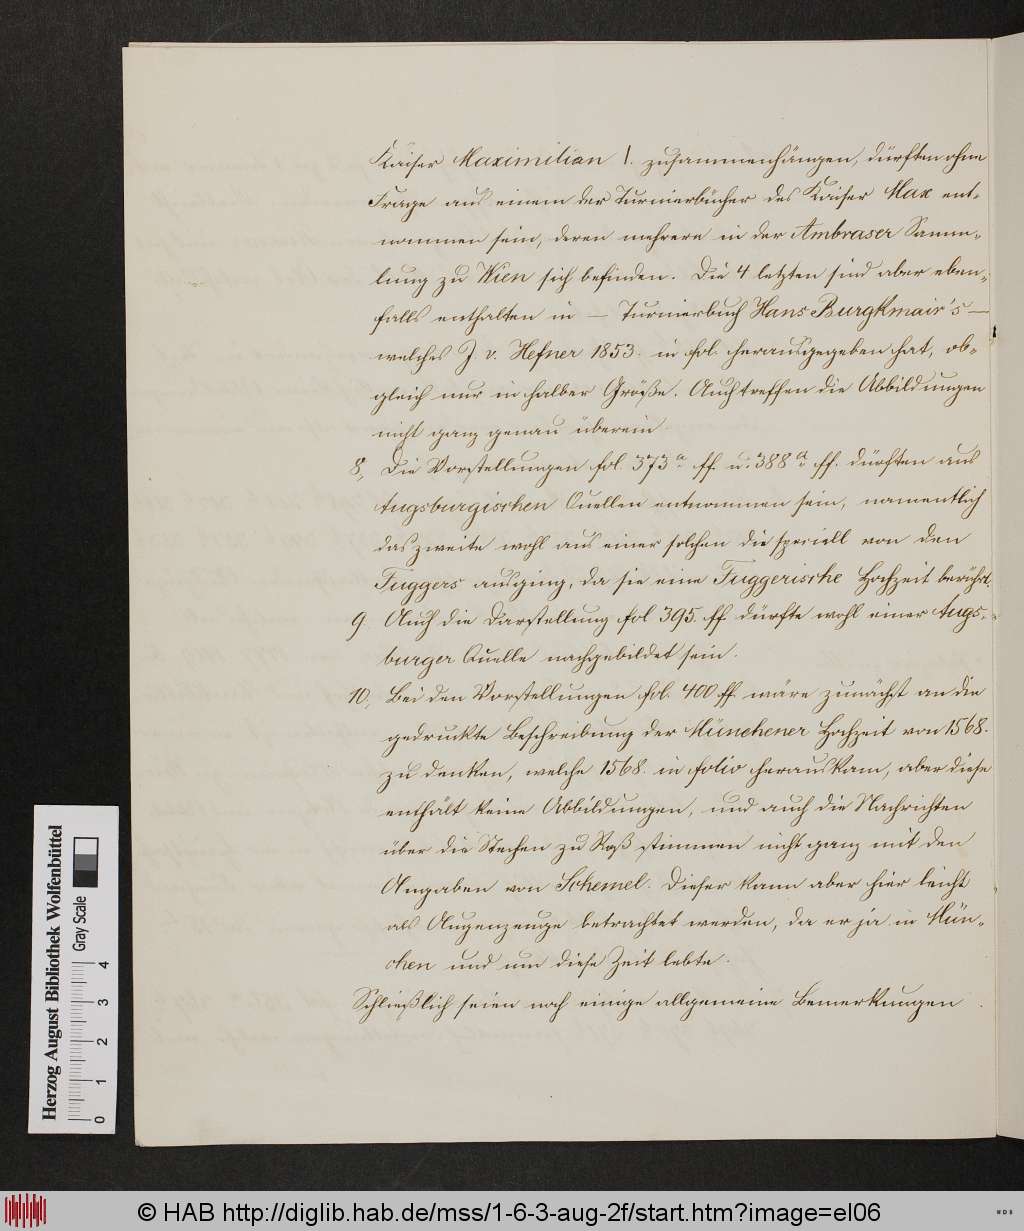 Kaiser Maximilian I. zusammenhängen, dürften ohne
Frage aus einem der Turnierbücher des Kaiser Max ent-
nommen sein, deren mehrere in der Ambraser Samm-
lung zu Wien sich befinden. Die 4 letzten sind aber eben-
falls enthalten in — Turnierbuch Hans Burgkmair's —
welches J. v. Hefner 1853. in fol. herausgegeben hat, ob-
gleich nur in halber Größe. Auch treffen die Abbildungen
nicht ganz genau überein.
8, Die Vorstellungen fol. 373a ff. u. 388a ff. dürften aus
Augsburgischen Quellen entnommen sein, namentlich
das zweite wohl aus einer solchen die speciell von den
Fuggers ausging, da sie eine Fuggerische Hochzeit berührt.
9. Auch die Darstellung fol 395. ff dürfte wohl einer Augs-
burger Quelle nachgebildet sein.
10, Bei den Vorstellungen fol. 400 ff. wäre zunächst an die
gedruckte Beschreibung der Münchener Hochzeit von 1568.
zu denken, welche 1568. in folio herauskam, aber diese
enthält keine Abbildungen, und auch die Nachrichten
über die Stechen zu Roß stimmen nicht ganz mit den
Angaben von Schemel. Dieser kann aber hier leicht
als Augenzeuge betrachtet werden, da er ja in Mün-
chen und um diese Zeit lebte.
Schließlich seien noch einige allgemeine Bemerkungen
Herzog August Bibliothek Wolfenbüttel
Gray Scale
0 1 2 3 4
© HAB http://diglib.hab.de/mss/1-6-3-aug-2f/start.htm?image=el06